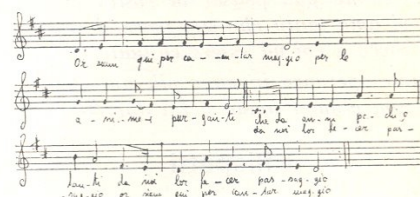 Or seun qui per ca - en - tar mag - gio per le
a - ni - me - i pur - gan - ti che da en - ni po - chi ç
da noi lor fe - cer pas -
tan - ti da noi lor fe - cer pas - sag - gio
- sag - gio or seun qui per can - tar mag - gio